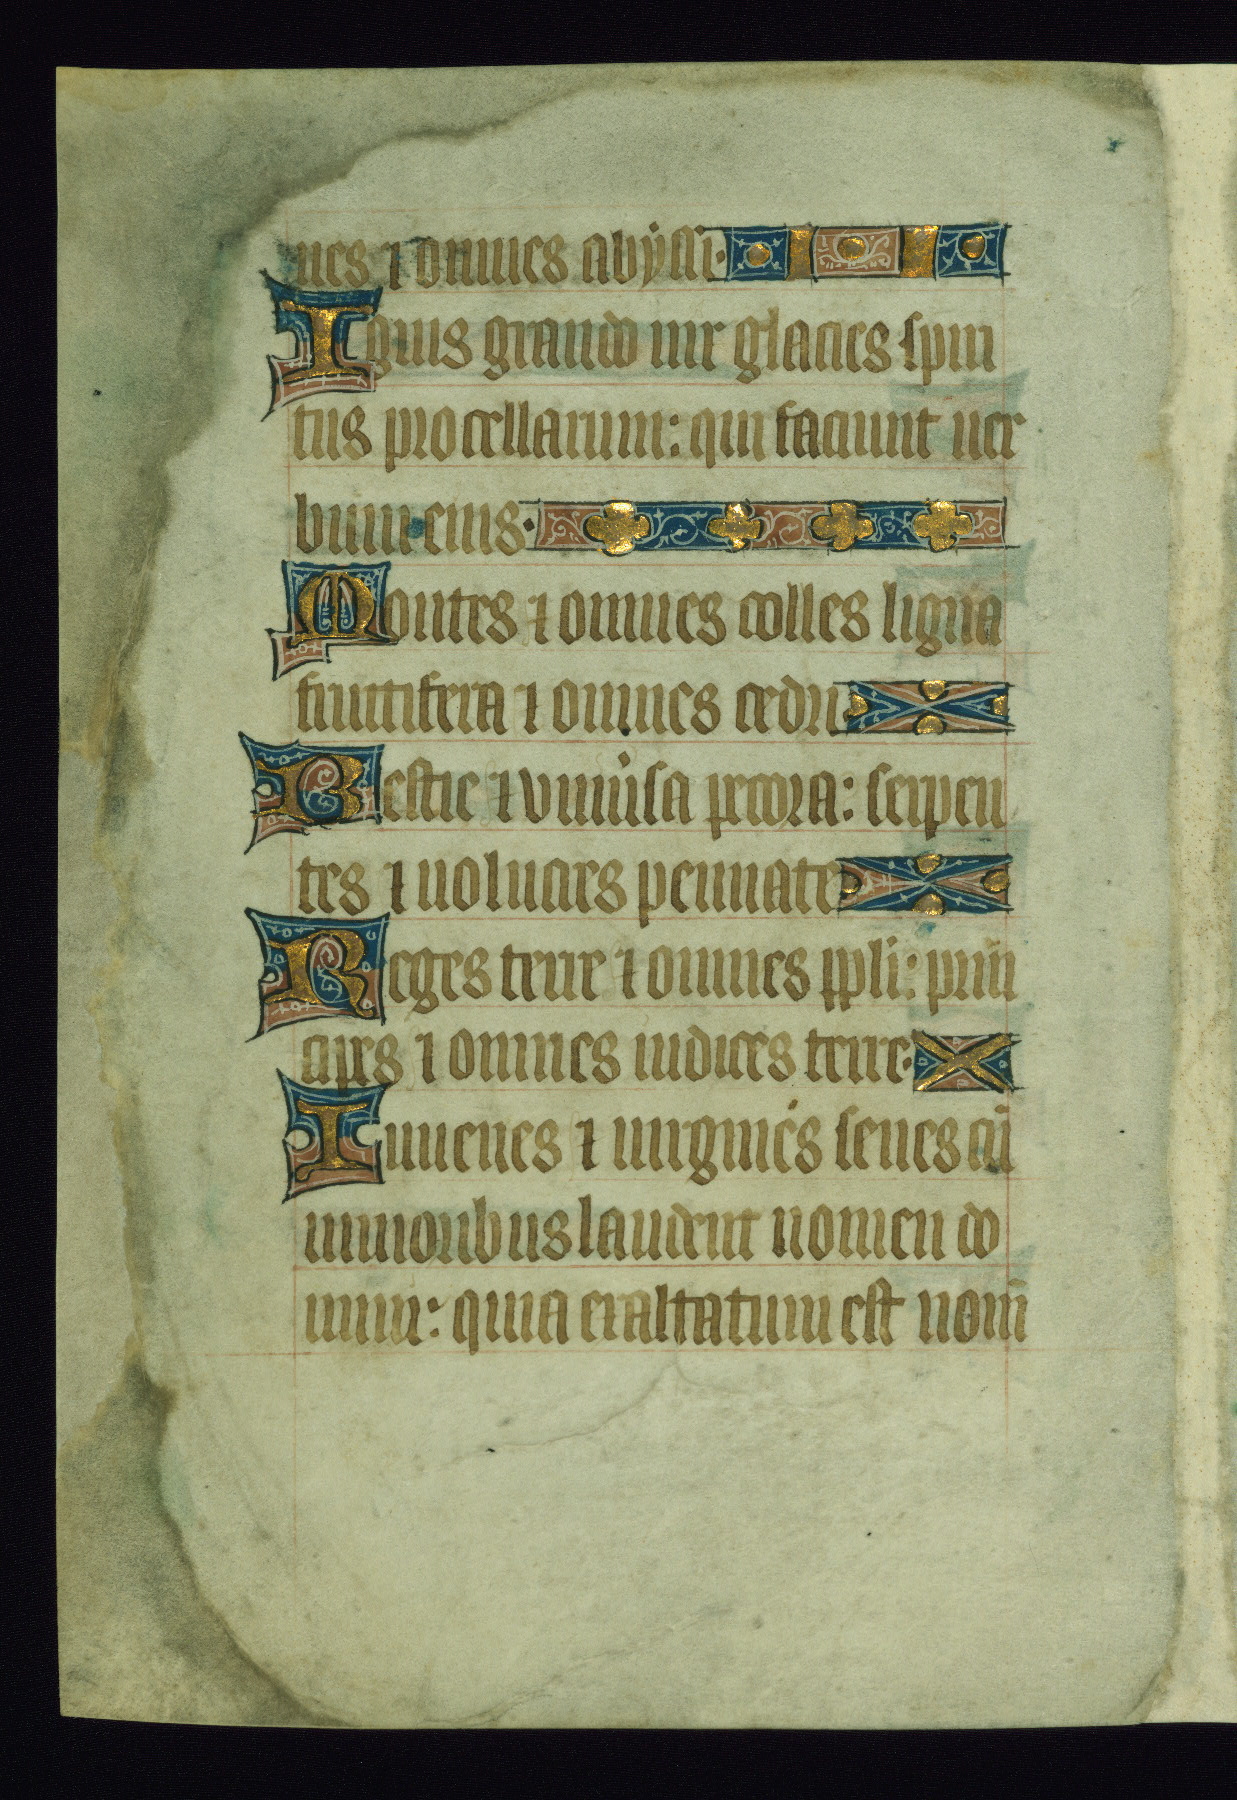 nes ⁊ omnes abyssi·
Ignis grando nix glacies spiri
tus procellarum: qui faciunt uer
bum eius·
Montes ⁊ omnes colles ligna
fructifera ⁊ omnes cedri
Bestie ⁊ vniu̾sa pecora: serpen
tes ⁊ uolucres pennate
Reges terre ⁊ omnes ppli: prin
cipes ⁊ omnes iudices terre·
Iuuenes ⁊ uirgines senes cū
iunioribus laudent nomen do
mini: quia exaltatum est nom̄